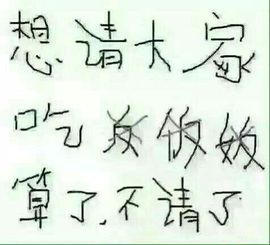 想请大家
吃
算了,不请了